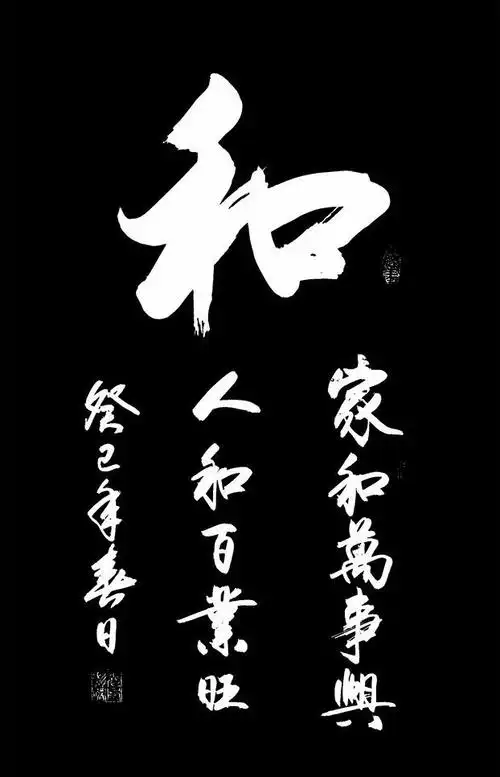 和
家和萬事興
人和百業旺
癸巳年春日